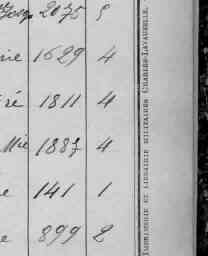 2075 5
1629 4
1811 4
1887 4
141 1
899 2
IMPRIMERIE ET LIBRAIRIE MILITAIRES CHARLES-LAVAUZELLE.